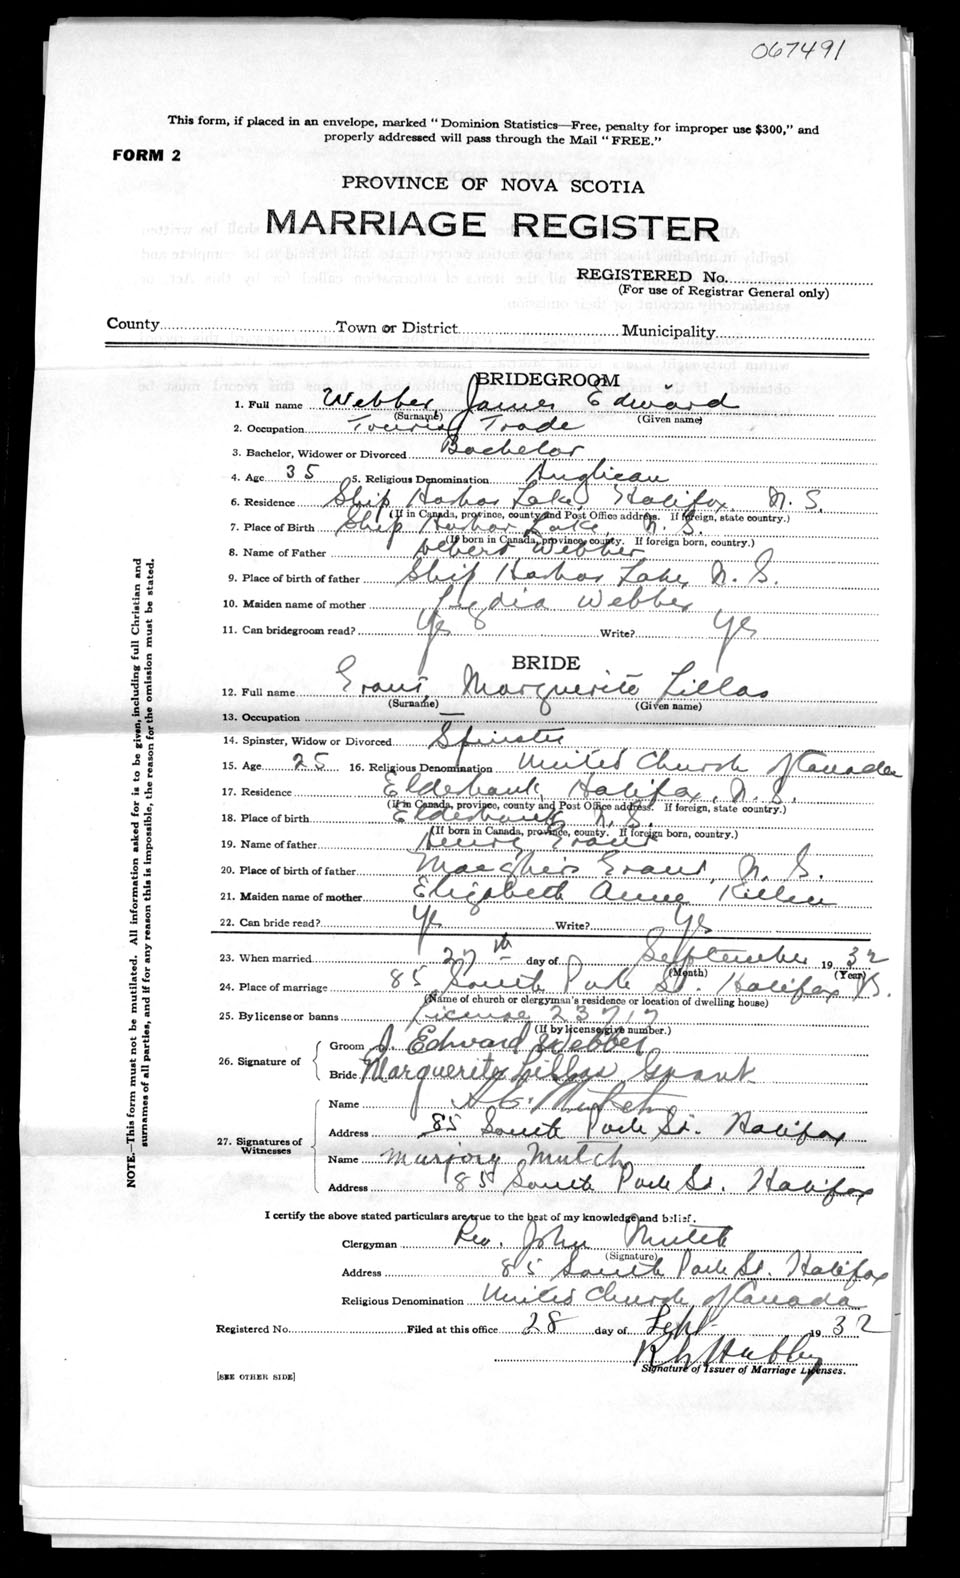 067491
This form, if placed in an envelope, marked "Dominion Statistics—Free, penalty for improper use $300," and
properly addressed will pass through the Mail "FREE."
FORM 2
PROVINCE OF NOVA SCOTIA
MARRIAGE REGISTER
REGISTERED No.
(For use of Registrar General only)
County Town or District Municipality
BRIDEGROOM
1. Full name Webber James Edward
(Surname) (Given name)
2. Occupation Tourist Trade
3. Bachelor, Widower or Divorced Bachelor
4. Age 35 5. Religious Denomination Anglican
6. Residence Ship Harbor Lake, Halifax, N.S.
(If in Canada, province, county and Post Office address. If foreign, state country.)
7. Place of Birth Ship Harbor Lake, N.S.
(If born in Canada, province, county. If foreign born, country.)
8. Name of Father Webber
9. Place of birth of father Ship Harbor Lake, N.S.
10. Maiden name of mother Lydia Webber
11. Can bridegroom read? Yes Write? Yes
BRIDE
12. Full name Grant, Marguerite Lillas
(Surname) (Given name)
13. Occupation —
14. Spinster, Widow or Divorced Spinster
15. Age 25 16. Religious Denomination United Church of Canada
17. Residence Elderbank, Halifax, N.S.
(If in Canada, province, county and Post Office address. If foreign, state country.)
18. Place of birth Elderbank N.S.
(If born in Canada, province, county. If foreign born, country.)
19. Name of father Henry Grant
20. Place of birth of father Meaghers Grant, N.S.
21. Maiden name of mother Elizabeth Annie Killen
22. Can bride read? Yes Write? Yes
23. When married 27th day of September 1932
(Month) (Year)
24. Place of marriage 85 South Park St. Halifax N.S.
(Name of church or clergyman's residence or location of dwelling house)
25. By license or banns License 23717
(If by license give number.)
26. Signature of Groom J. Edward Webber
Bride Marguerite Lillas Grant
27. Signatures of Witnesses
Name Mutch
Address 85 South Park St. Halifax
Name Marjory Mutch
Address 85 South Park St. Halifax
I certify the above stated particulars are true to the best of my knowledge and belief.
Clergyman Rev. John Mutch
(Signature)
Address 85 South Park St. Halifax
Religious Denomination United Church of Canada
Registered No. Filed at this office 28 day of Sept 1932
Hubley
Signature of Issuer of Marriage Licenses.
[SEE OTHER SIDE]
NOTE.—This form must not be mutilated. All information asked for is to be given, including full Christian and
surnames of all parties, and if for any reason this is impossible, the reason for the omission must be stated.